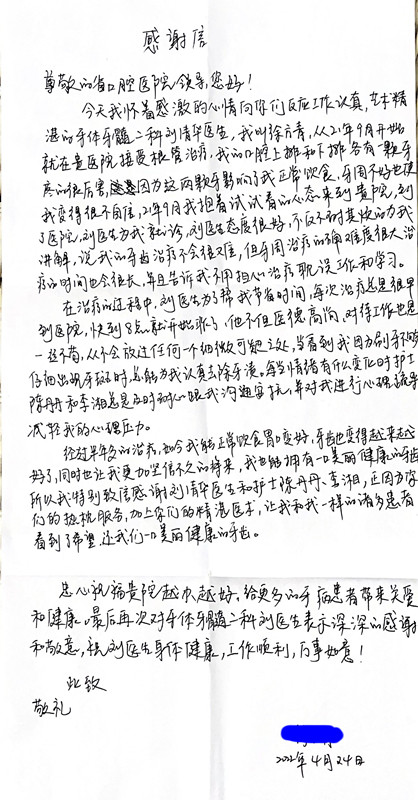 感谢信
尊敬的省口腔医院领导,您好!
今天我怀着感激的心情向你们反应工作认真,技术精
湛的牙体牙髓二科刘清华医生,我叫徐方青,从21年9月开始
就在贵医院接受根管治疗,我的口腔上排和下排各有一颗牙
疼的很厉害,因为这两颗牙影响了我正常饮食,牙周不好也使
我变得很不自信,21年9月我抱着试试看的心态来到贵院,到
了医院,刘医生为我就诊,刘医生态度很好,不仅不耐其烦的为我
讲解,说我的牙齿治疗不会很难,但牙周治疗的确难度很大治
疗的时间也会很长,并且告诉我不用担心治疗耽误工作和学习。
在治疗的过程中,刘医生为了帮我节省时间,每次治疗总是很早
到医院,快到8点就开始了,他不但医德高尚,对待工作也是
一丝不苟,从不会放过任何一个细微可疑之处,当看到我因为刷牙不够
仔细出现牙垢时,总能为我认真去除牙渍。每当情绪有什么变化时护士
陈丹丹和李湘总是及时耐心跟我沟通安抚,并对我进行心理疏导
减轻我的心理压力。
经过半年多的治疗,如今我能正常饮食胃口变好,牙齿也变得越来越
好了,同时也让我更加坚信不久的将来,我也能拥有一口美丽健康的牙齿
所以我特别致信感谢刘清华医生和护士陈丹丹、李湘,正因为你
们的热忱服务,加上你们的精湛医术,让我和我一样的诸多患者
看到了希望,还我们一口美丽健康的牙齿。
忠心祝福贵院越办越好,给更多的牙病患者带来关爱
和健康。最后再次对牙体牙髓二科刘医生表示深深的感谢
和敬意,祝刘医生身体健康,工作顺利,万事如意!
此致
敬礼
2022年4月24日